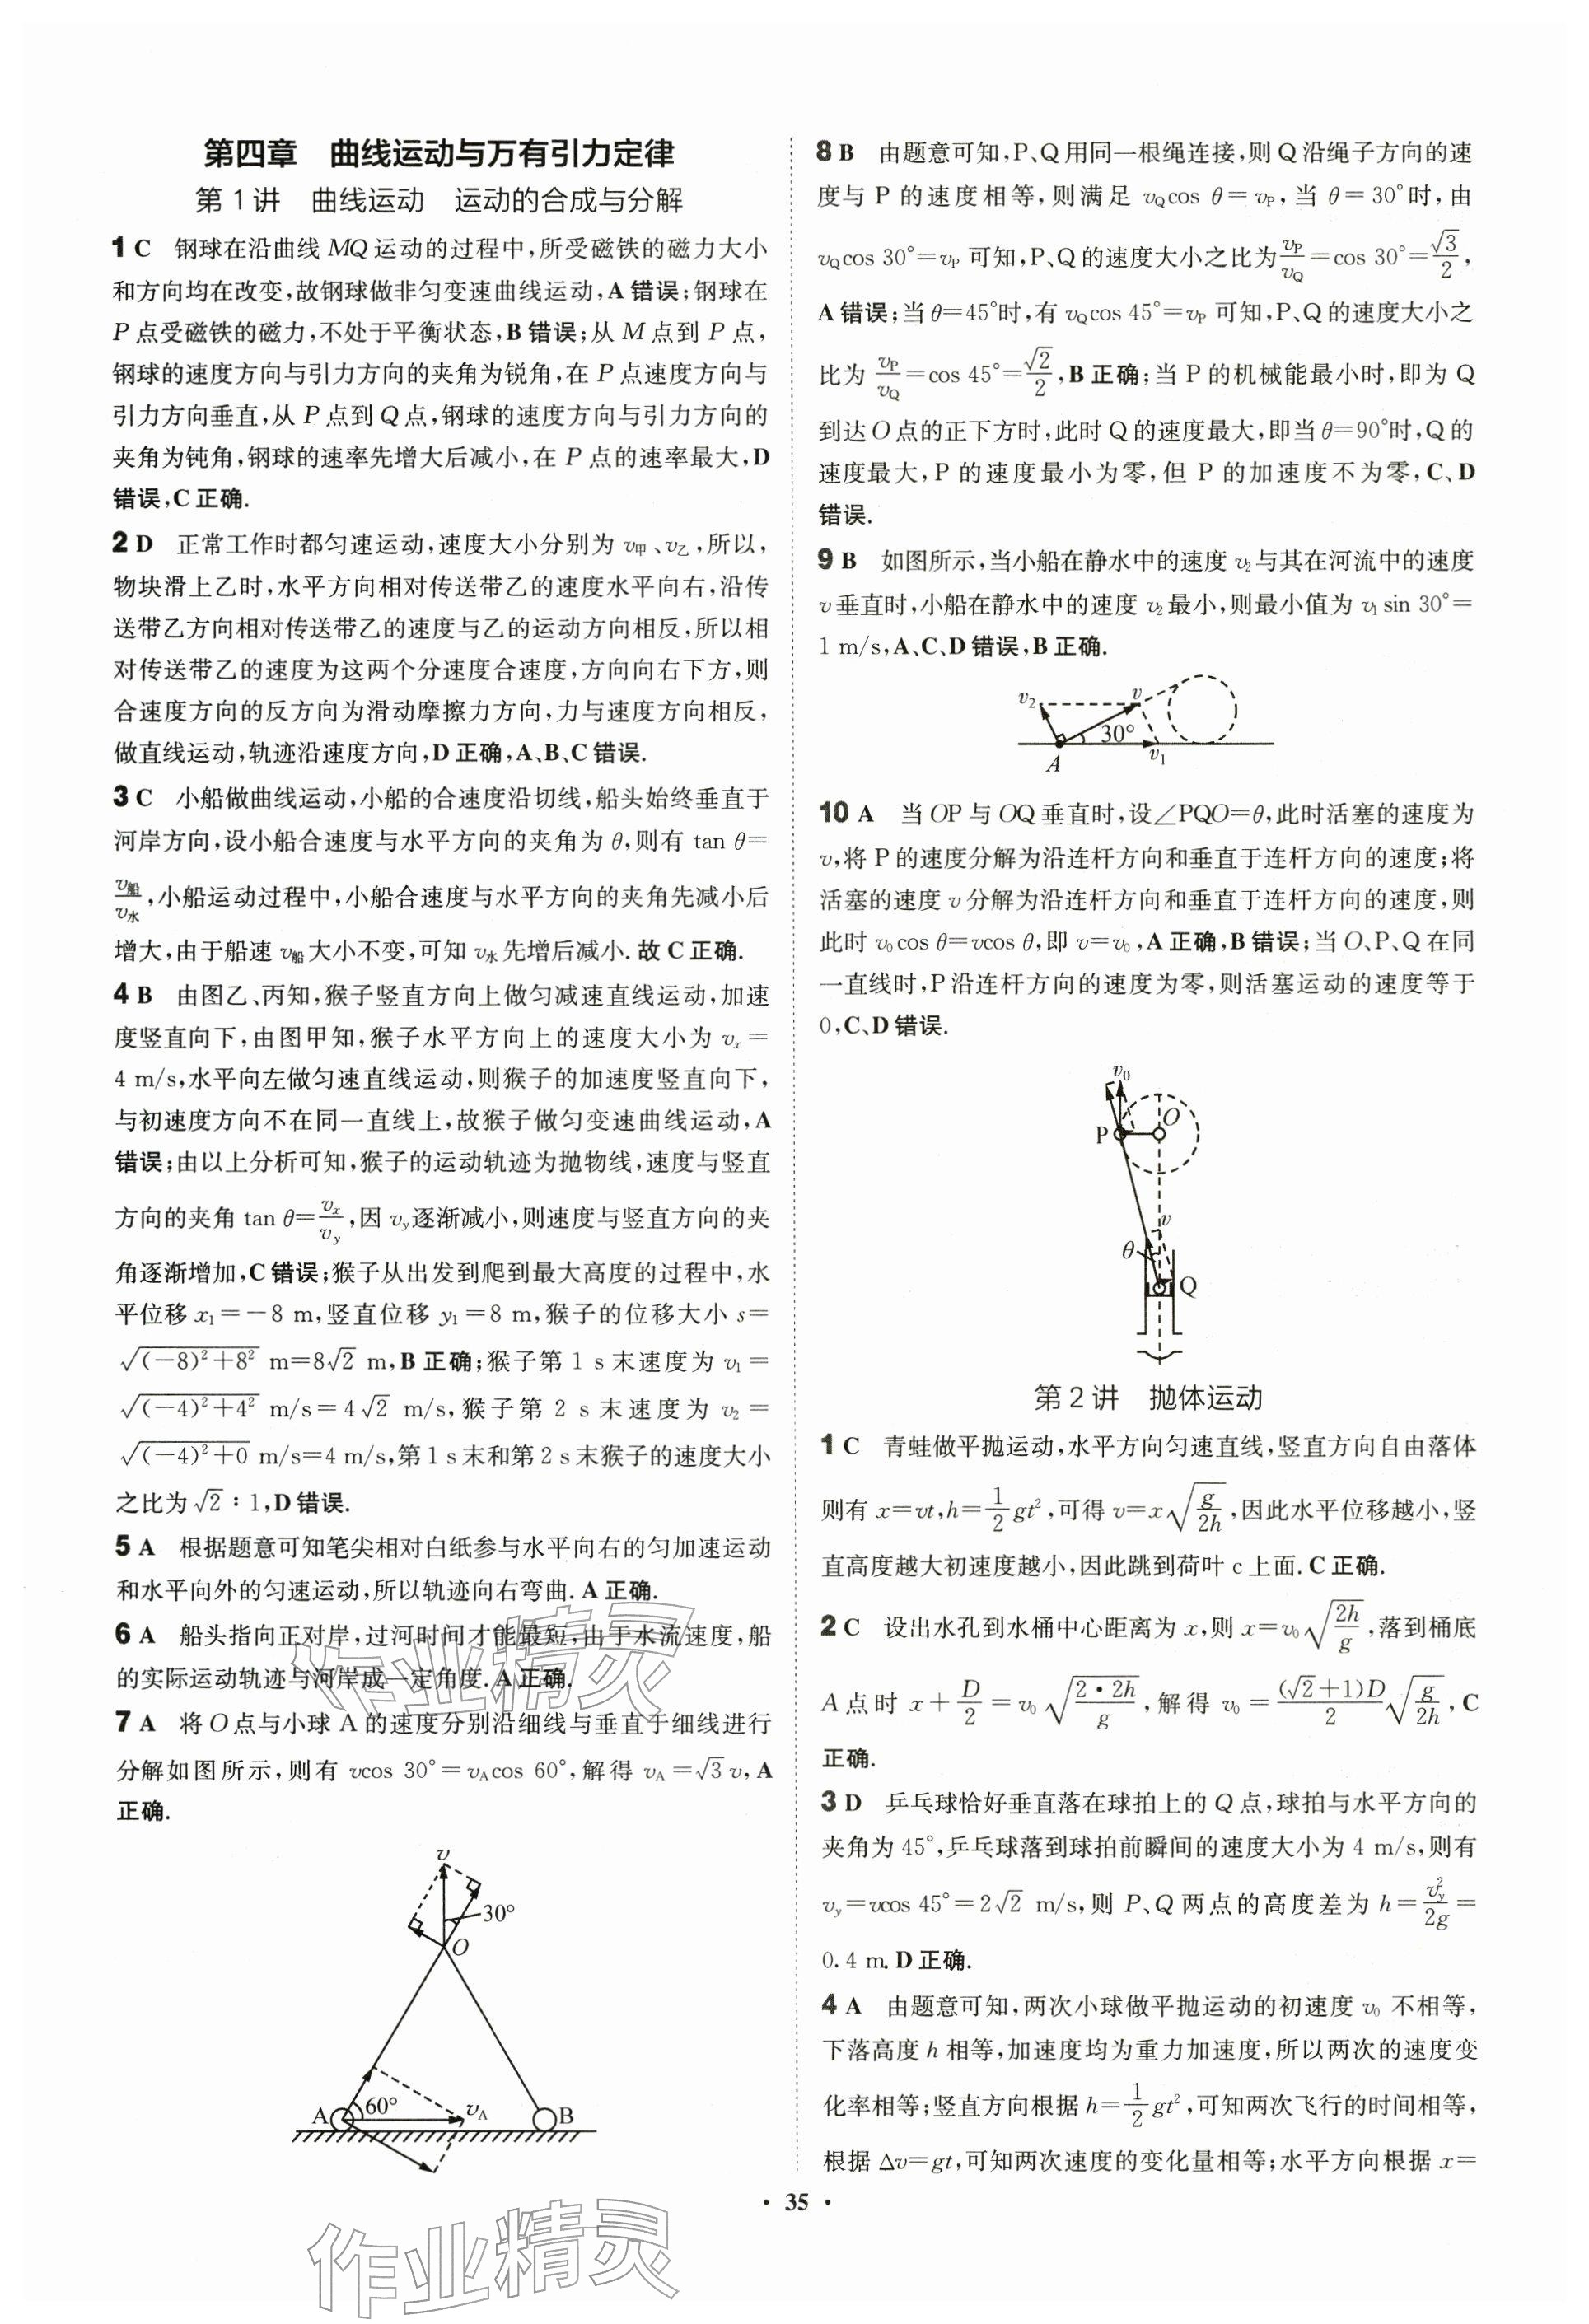 第四章 曲线运动与万有引力定律
第 1 讲 曲线运动 运动的合成与分解
1 C 钢球在沿曲线 MQ 运动的过程中,所受磁铁的磁力大小
和方向均在改变,故钢球做非匀变速曲线运动,A 错误;钢球在
P 点受磁铁的磁力,不处于平衡状态,B 错误;从 M 点到 P 点,
钢球的速度方向与引力方向的夹角为锐角,在 P 点速度方向与
引力方向垂直,从 P 点到 Q 点,钢球的速度方向与引力方向的
夹角为钝角,钢球的速率先增大后减小,在 P 点的速率最大,D
错误,C 正确.
2 D 正常工作时都匀速运动,速度大小分别为 v甲、v乙,所以,
物块滑上乙时,水平方向相对传送带乙的速度水平向右,沿传
送带乙方向相对传送带乙的速度与乙的运动方向相反,所以相
对传送带乙的速度为这两个分速度合速度,方向向右下方,则
合速度方向的反方向为滑动摩擦力方向,力与速度方向相反,
做直线运动,轨迹沿速度方向,D 正确,A、B、C 错误.
3 C 小船做曲线运动,小船的合速度沿切线,船头始终垂直于
河岸方向,设小船合速度与水平方向的夹角为 θ,则有 tan θ=
v船/v水,小船运动过程中,小船合速度与水平方向的夹角先减小后
增大,由于船速 v船大小不变,可知 v水先增后减小. 故 C 正确.
4 B 由图乙、丙知,猴子竖直方向上做匀减速直线运动,加速
度竖直向下,由图甲知,猴子水平方向上的速度大小为 vₓ=
4 m/s,水平向左做匀速直线运动,则猴子的加速度竖直向下,
与初速度方向不在同一直线上,故猴子做匀变速曲线运动,A
错误;由以上分析可知,猴子的运动轨迹为抛物线,速度与竖直
方向的夹角 tan θ=vₓ/v_y,因 v_y逐渐减小,则速度与竖直方向的夹
角逐渐增加,C 错误;猴子从出发到爬到最大高度的过程中,水
平位移 x₁=-8 m,竖直位移 y₁=8 m,猴子的位移大小 s=
√((-8)²+8²) m=8√2 m,B 正确;猴子第 1 s 末速度为 v₁=
√((-4)²+4²) m/s=4√2 m/s,猴子第 2 s 末速度为 v₂=
√((-4)²+0) m/s=4 m/s,第 1 s 末和第 2 s 末猴子的速度大小
之比为 √2∶1,D 错误.
5 A 根据题意可知笔尖相对白纸参与水平向右的匀加速运动
和水平向外的匀速运动,所以轨迹向右弯曲. A 正确.
6 A 船头指向正对岸,过河时间才能最短,由于水流速度,船
的实际运动轨迹与河岸成一定角度. A 正确.
7 A 将 O 点与小球 A 的速度分别沿细线与垂直于细线进行
分解如图所示,则有 vcos 30°=v_Acos 60°,解得 v_A=√3 v,A
正确.
v
30°
O
A
60°
v_A
B
8 B 由题意可知,P、Q 用同一根绳连接,则 Q 沿绳子方向的速
度与 P 的速度相等,则满足 v_Qcos θ=v_P,当 θ=30°时,由
v_Qcos 30°=v_P 可知,P、Q 的速度大小之比为v_P/v_Q=cos 30°=√3/2,
A 错误;当 θ=45°时,有 v_Qcos 45°=v_P 可知,P、Q 的速度大小之
比为 v_P/v_Q=cos 45°=√2/2,B 正确;当 P 的机械能最小时,即为 Q
到达 O 点的正下方时,此时 Q 的速度最大,即当 θ=90°时,Q 的
速度最大,P 的速度最小为零,但 P 的加速度不为零,C、D
错误.
9 B 如图所示,当小船在静水中的速度 v₂与其在河流中的速度
v 垂直时,小船在静水中的速度 v₂最小,则最小值为 v₁sin 30°=
1 m/s,A、C、D 错误,B 正确.
v₂
v
30°
A
v₁
10 A 当 OP 与 OQ 垂直时,设∠PQO=θ,此时活塞的速度为
v,将 P 的速度分解为沿连杆方向和垂直于连杆方向的速度;将
活塞的速度 v 分解为沿连杆方向和垂直于连杆方向的速度,则
此时 v₀cos θ=vcos θ,即 v=v₀,A 正确,B 错误;当 O、P、Q 在同
一直线时,P 沿连杆方向的速度为零,则活塞运动的速度等于
0,C、D 错误.
v₀
P
O
v
θ
Q
第 2 讲 抛体运动
1 C 青蛙做平抛运动,水平方向匀速直线,竖直方向自由落体
则有 x=vt,h=1/2 gt²,可得 v=x√(g/2h),因此水平位移越小,竖
直高度越大初速度越小,因此跳到荷叶 c 上面. C 正确.
2 C 设出水孔到水桶中心距离为 x,则 x=v₀√(2h/g),落到桶底
A 点时 x+D/2=v₀√(2·2h/g),解得 v₀=(√2+1)D/2 √(g/2h),C
正确.
3 D 乒乓球恰好垂直落在球拍上的 Q 点,球拍与水平方向的
夹角为 45°,乒乓球落到球拍前瞬间的速度大小为 4 m/s,则有
v_y=vcos 45°=2√2 m/s,则 P、Q 两点的高度差为 h=v_y²/2g=
0.4 m. D 正确.
4 A 由题意可知,两次小球做平抛运动的初速度 v₀ 不相等,
下落高度 h 相等,加速度均为重力加速度,所以两次的速度变
化率相等;竖直方向根据 h=1/2 gt²,可知两次飞行的时间相等,
根据 Δv=gt,可知两次速度的变化量相等;水平方向根据 x=
· 35 ·
作业精灵
作业精灵